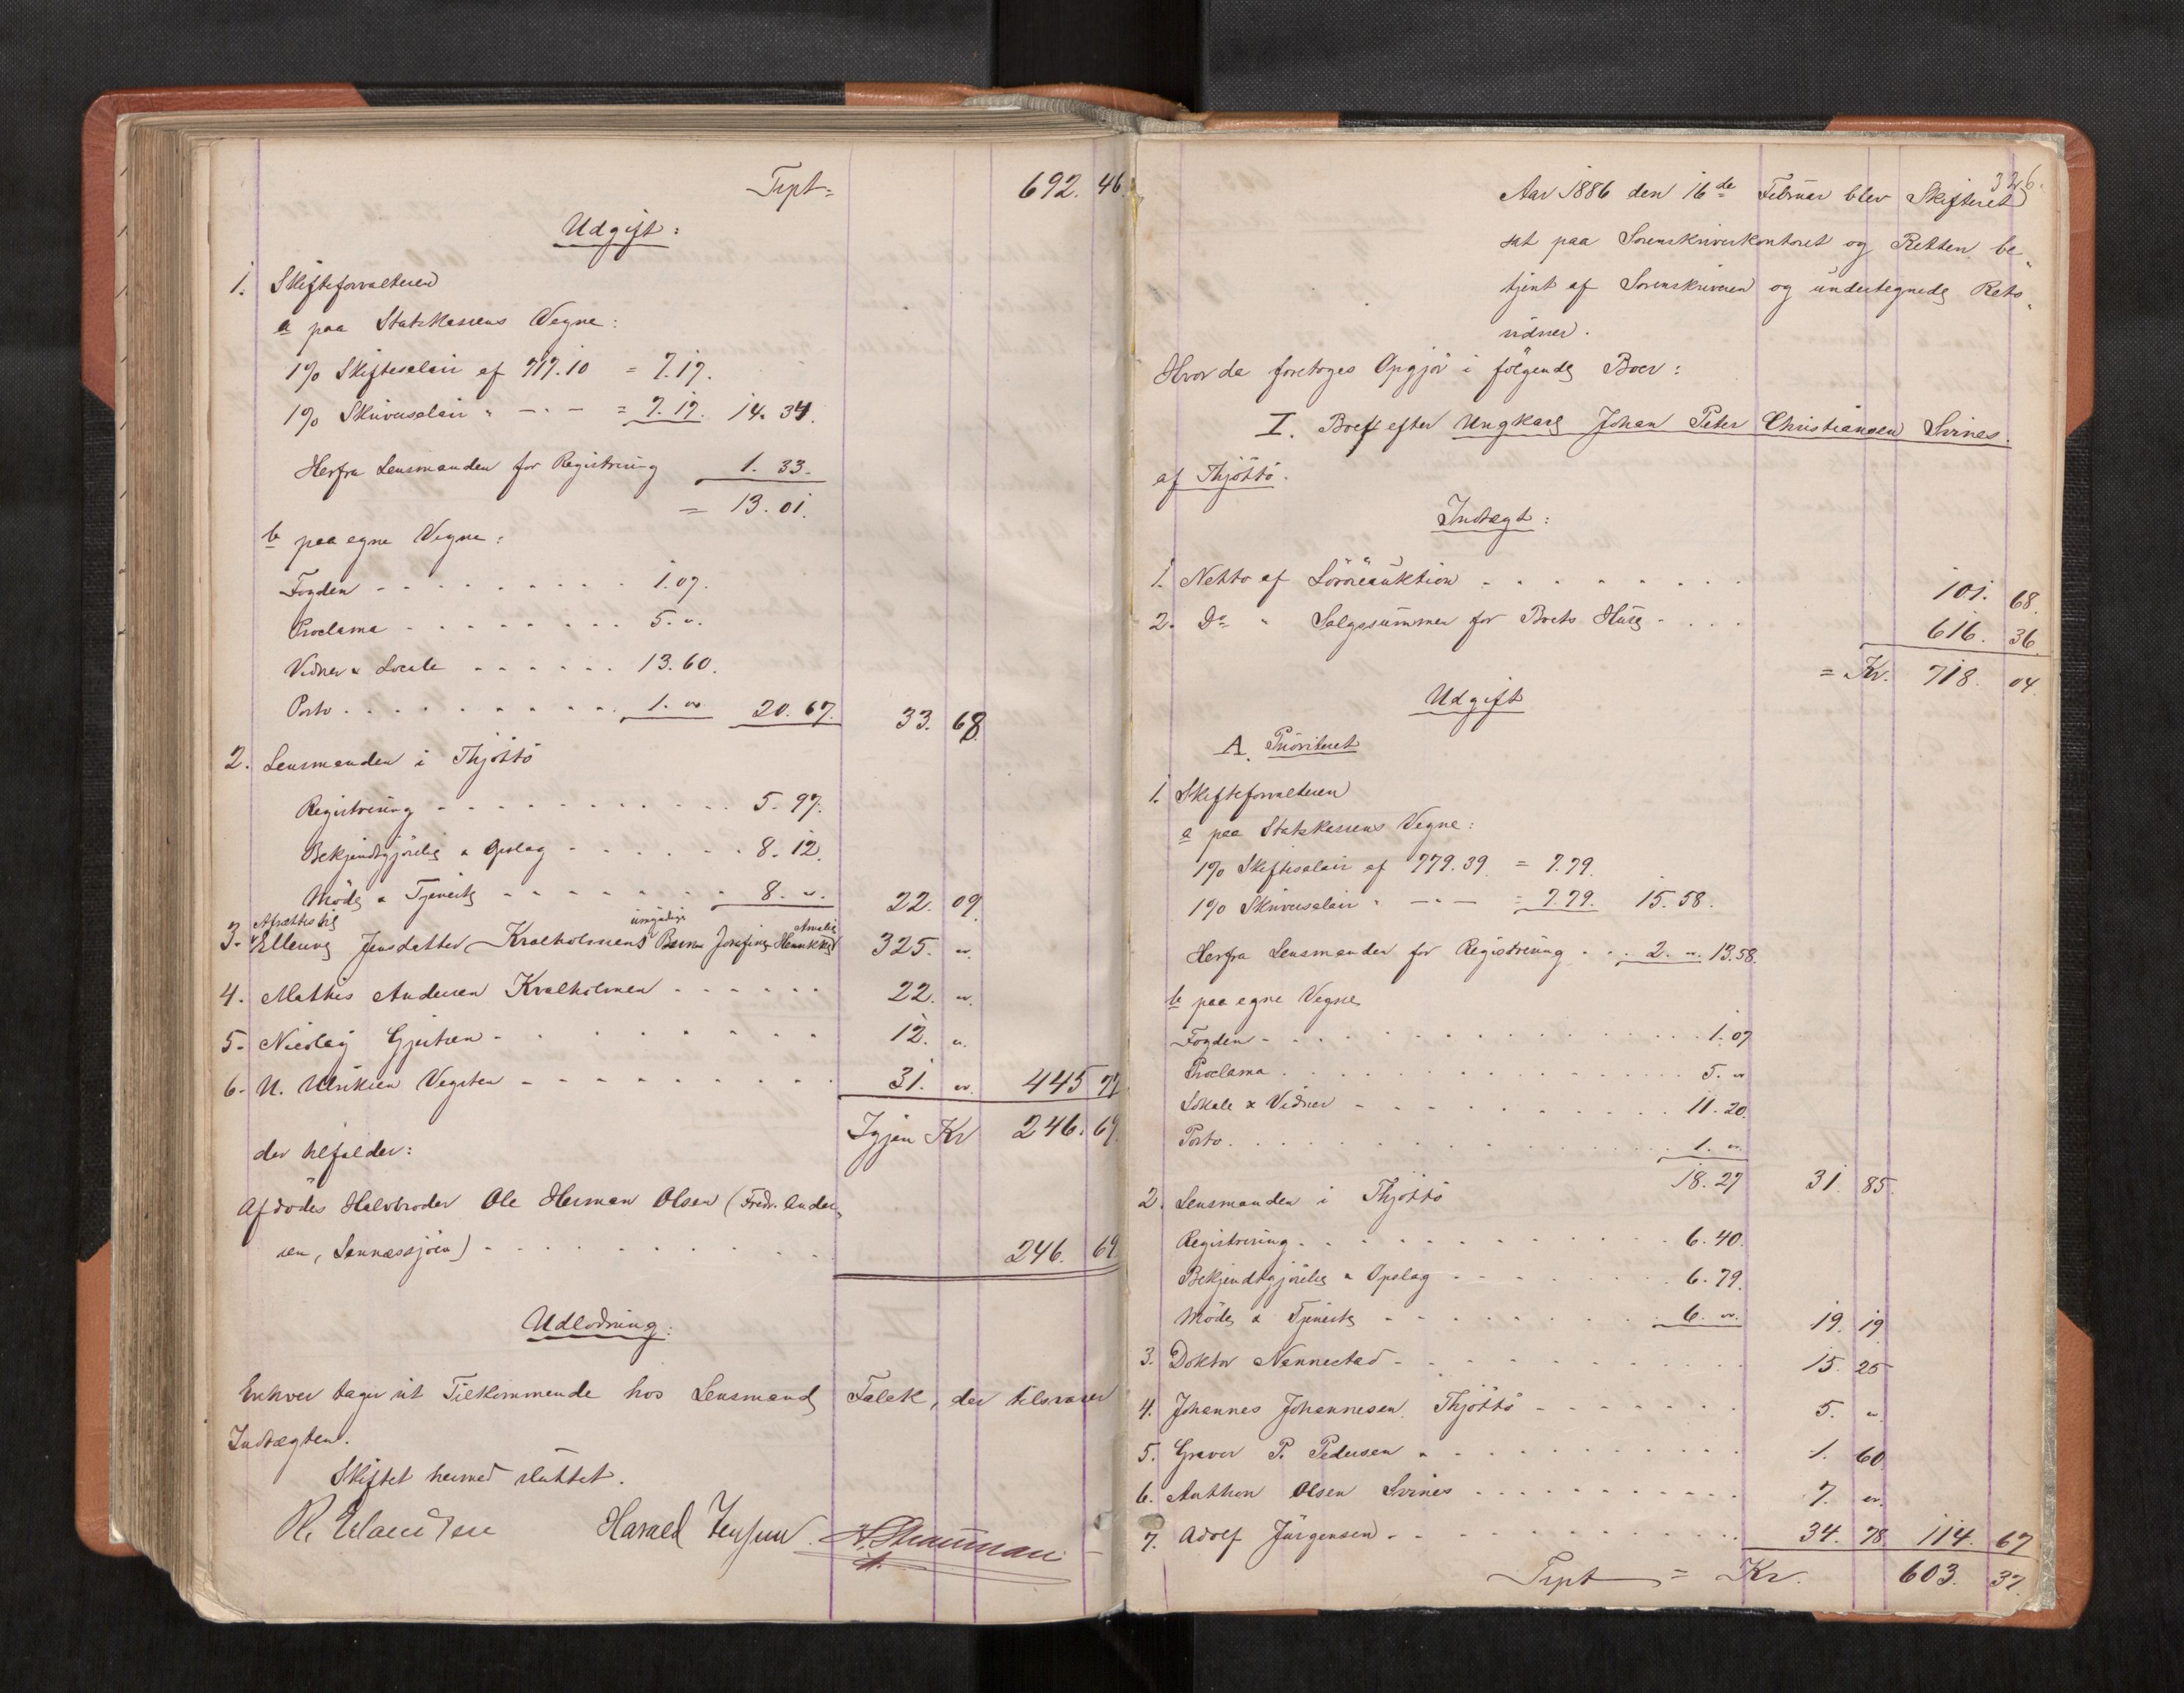 Trpt. 692. 46.
Udgift:
1. Skifteforvalteren
a paa Statskassens Vegne:
1% Skiftesalair af 717.10 = 7.17.
1% Skriversalair " — " — = 7.17. 14. 34.
Herfra Lensmanden for Registrering 1. 33.
= 13. 01.
b paa egne Vegne:
Fogden 1.07.
Proclama 5. "
Vidner & Locale 13. 60.
Porto 1. " 20. 67. 33. 68.
2. Lensmanden i Thjöttö
Registrering 5. 97.
Bekjendtgjörelse & Opslag 8. 12.
Möde & Tjeneste 8. " 22. 09.
Afsættes til umyndige Amalie
3. Elleung Jensdatter Kvalholmens Barn Josefine Henrikke 325. "
4. Mathis Andersen Kvalholmen 22. "
5. Nicolay Gjertsen 12. "
6. N. Ulriksen Vegsten 31. " 445 77
Igjen Kr 246. 69.
der tilfalder:
Afdödes Halvbroder Ole Herman Olsen (Fredr. Ander-
sen, Sannessjöen) 246. 69
Udlodning:
Enhver tager sit Tilkommende hos Lensmand Falck, der tilsvarer
Indtægten.
Skiftet hermed sluttet.
Harald Jensen
326.
Aar 1886 den 16de Februar blev Skifteret
sat paa Sorenskriverkontoret og Retten be-
tjent af Sorenskriveren og undertegnede Rets-
vidner.
Hvor da foretoges Opgjör i fölgende Boer:
I. Boet efter Ungkarl Johan Peter Christiansen Svines
af Thjöttö.
Indtægt:
1. Netto af Lösöreauktion 101. 68.
2. Do " Salgssummen for Boets Huse 616. 36.
= Kr. 718. 04.
Udgift
A. Prioriteret
1. Skifteforvalteren
a paa Statskassens Vegne:
1% Skiftesalair af 779.39 = 7.79.
1% Skriversalair " — " — = 7.79. 15. 58.
Herfra Lensmanden for Registrering 2. " 13.58.
b paa egne Vegne
Fogden 1.07
Proclama 5. "
Lokale & Vidner 11. 20.
Porto 1. "
18. 27 31. 85.
2. Lensmanden i Thjöttö
Registrering 6. 40.
Bekjendtgjörelse & Opslag 6. 79.
Möde & Tjeneste 6. " 19. 19.
3. Doktor Nannestad 15. 25
4. Johannes Johannesen Thjöttö 5. "
5. Graver P. Pedersen 1. 60.
6. Anthon Olsen Svines 7. "
7. Adolf Jürgensen 34. 78 114. 67
Trpt = Kr. 603. 37.